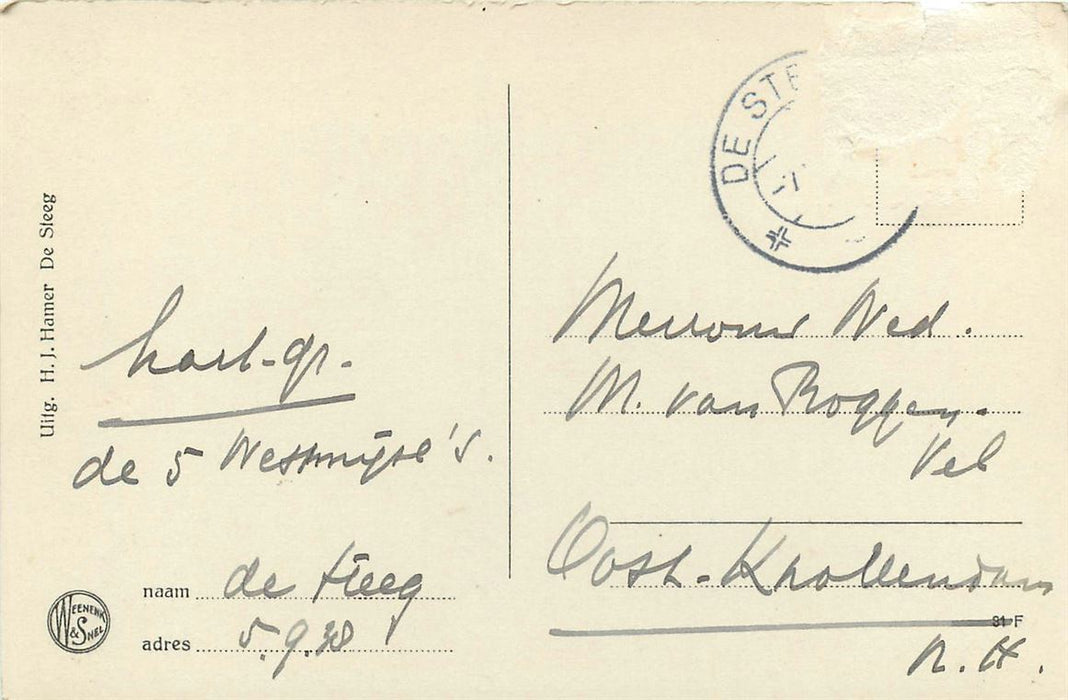 Uitg. H. J. Hamer De Steeg
hart-gr.
de 5 Westmijse's.
naam de Steeg
adres 5.9.38
WEENENK & SNEL
DE STE
Mevrouw Wed.
M. van Roggen-
vel
Oost-Knollendam
31 F
N.H.